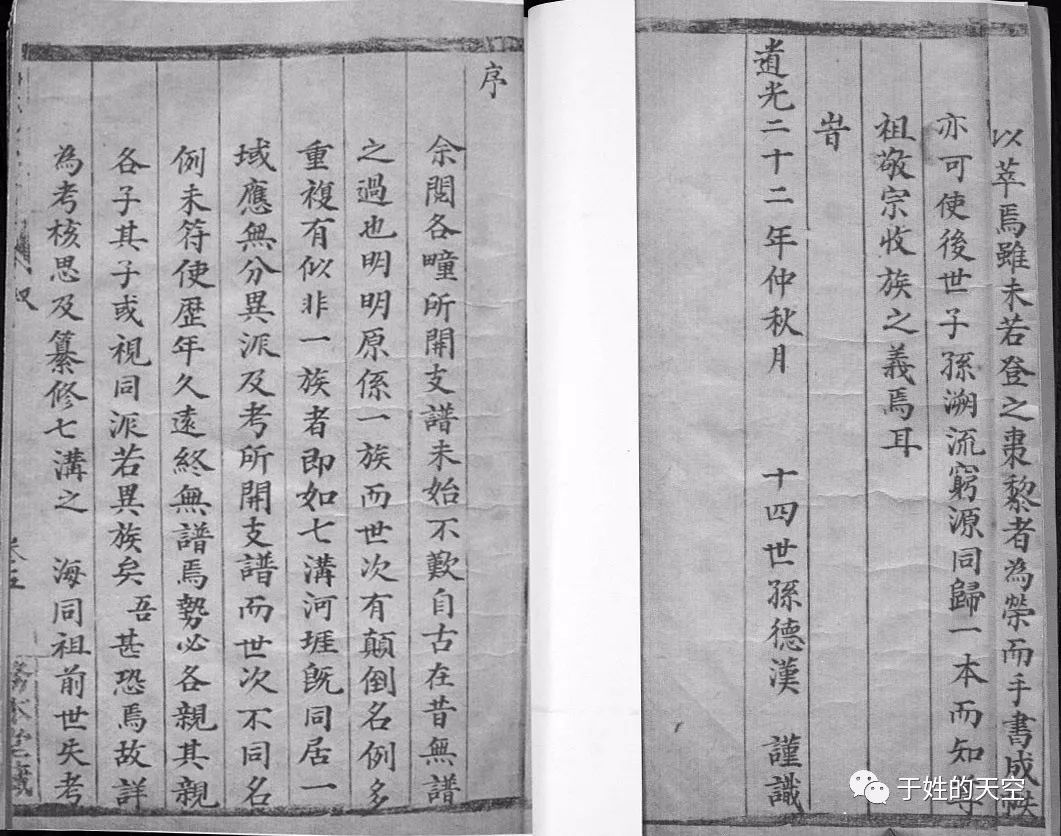 以萃焉雖未若登之棗棃者為榮而手書成帙
亦可使後世子孫溯流窮源同歸一本而知
祖敬宗收族之義焉耳
旹
道光二十二年仲秋月 十四世孫德漢 謹識
序
余閱各疃所開支譜未始不歎自古在昔無譜
之過也明明原係一族而世次有顛倒名例多
重複有似非一族者即如七溝河堐既同居一
域應無分異派及考所開支譜而世次不同名
例未符使歷年久遠終無譜焉勢必各親其親
各子其子或視同派若異族矣 吾甚恐焉故詳
為考核思及纂修七溝之 海同祖前世失考
于姓的天空